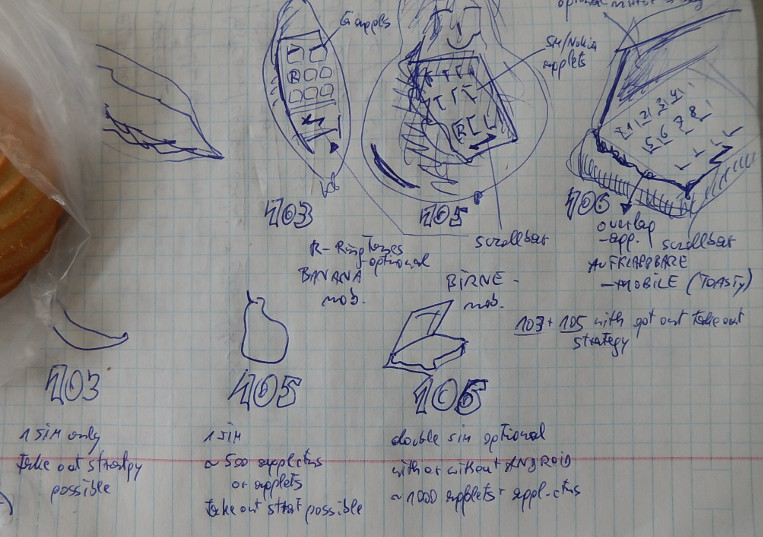 optional
6 applets
SH/Nokia
applets
R
R
1 2 3 4
5 6 7 8
103
105
106
R - Ringtones
- optional
BANANA
mob.
scrollbar
BIRNE -
mob.
overlap
- app. scrollbar
AUFKLAPPBARE
- MOBILE (TOASTY)
103 + 105 with got out take out
strategy
103
105
106
1 SIM only
take out strategy
possible
1 SIM
~ 500 applets
or applets
take out strat possible
double sim optional
with or without ANDROID
~ 1000 applets +